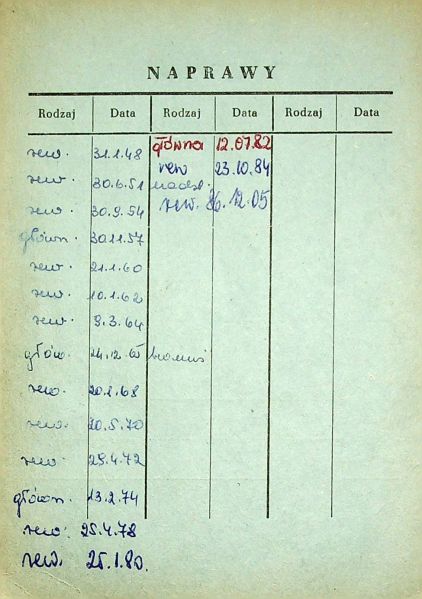 NAPRAWY
Rodzaj Data Rodzaj Data Rodzaj Data
rew. 31.1.48 główna 12.07.82
rew. 30.6.51 rew 23.10.84
rew. 30.9.54 rew. 86.12.05
główn. 30.11.57
rew. 21.1.60
rew. 10.1.62
rew. 9.3.64
głów. 24.12.65
rew. 20.1.68
rew. 20.5.70
rew. 25.4.72
główn. 13.2.74
rew. 25.4.78
rew. 25.1.80.